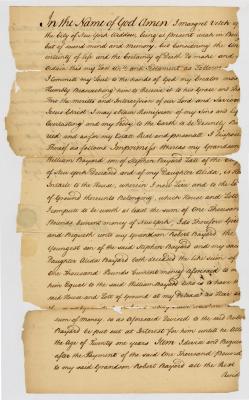 In the Name of God Amen I margret Vetch of
the City of New York Widdow, being at present weak in Body
but of sound mind and memory, but Considering the Un
certainty of life and the Certainty of Death do make and
Ordain this my last Will and Testament as follows
I Commit my Soul to the hands of God my Creator most
Humbly Beseaching him to Receive it to his Grace and tha
thro the merrits and Intercession of our Lord and Saviour
Jesus Christ I may obtain Remission of my sins and ly
Everlasting and my Body to the Earth to be Decently Bu
ried and as for my Estate Real and personal I Dispose
Thereof as follows Imprimis Whereas my Grandson
William Bayard son of Stephen Bayard Late of the City
of New York Deceased and of my Daughter Alida, is the
Intitle to the House wherein I now live and to the Lot
of Ground thereunto Belonging which House and Lot
I compute to be worth at least the sum of One Thousand
Pounds Current money of New York I do Therefore Give
and Bequeth unto my Grandson Robert Bayard the
Youngest son of the said Stephen Bayard and my said
Daughter Alida Bayard both deceased the Like sum of
One Thousand Pounds Current money aforesaid to m
him Equal to the said William Bayard who is to have the
said House and Lott of Ground at my Decease as Heir
sum of money so as aforesaid Devised to the said Robert
Bayard be put out at Interest for him untill he atta
the Age of Twenty one years Item I devise and Bequea
after the Payment of the said One Thousand Pounds
to my said Grandson Robert Bayard all the Rest